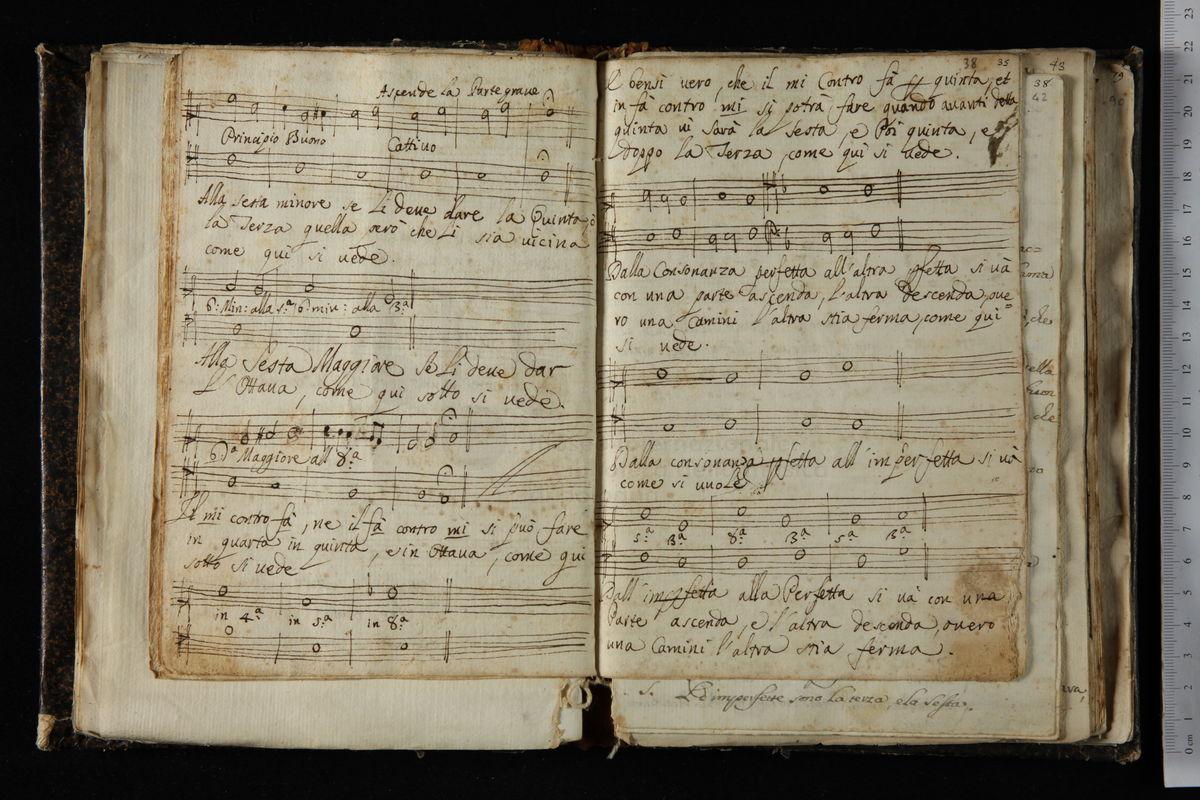 Ascende la Parte grave
Principio Buono Cattivo
Alla sesta minore se Li deve dare la Quinta, ò
la Terza quella però che Li sia vicina
come qui si vede.
6.ª Min: alla 5.ª 6.ª min: alla 3.ª
Alla Sesta Maggiore se Li deve dar
L'Ottava, come qui sotto si vede.
6.ª Maggiore all' 8.ª
Il mi contro fà, ne il fà contro mi si può fare
in quarta in quinta, e in Ottava, come qui
sotto si vede
in 4.ª in 5.ª in 8.ª
38 35
E bensi vero, che il mi Contro fà quinta, et
in fà contro mi si potra fare quando avanti della
quinta vi sarà la Sesta, e Poi quinta, e
doppo la Terza, come qui si vede.
Dalla Consonanza perfetta all'altra pfetta si và
con una parte ascenda, L'altra descenda, ove=
ro una Camini l'altra stia ferma, come qui
si vede.
Dalla consonanza pfetta all' imperfetta si và
come si vuole
5.ª 3.ª 8.ª 3.ª 5.ª 3.ª
Dall' impfetta alla Perfetta si và con una
Parte ascenda, e l'altra descenda, overo
una Camini l'altra stia ferma.
38
42
43
90
che
che
5. L'imperfette sono la terza, e la sesta.
0 cm 1 2 3 4 5 6 7 8 9 10 11 12 13 14 15 16 17 18 19 20 21 22 23